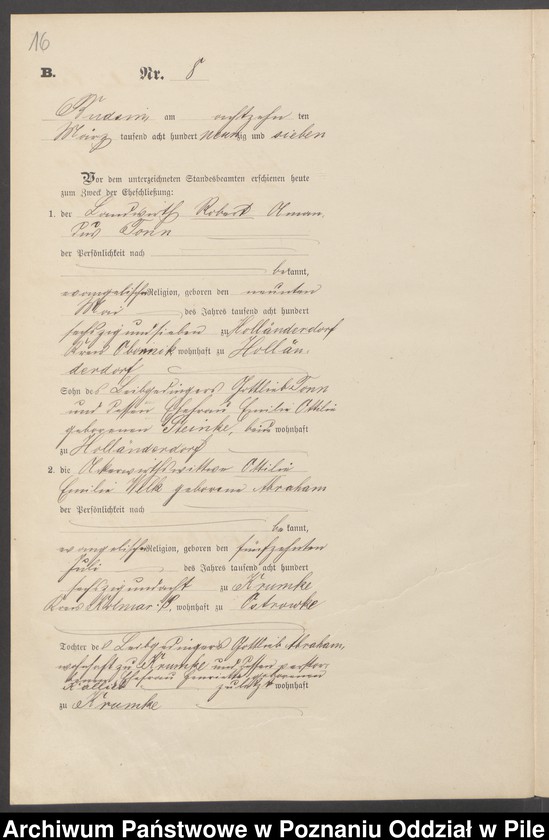 16
B. Nr. 8
Budsin am achtzehn ten
März tausend acht hundert neunzig und sieben
Vor dem unterzeichneten Standesbeamten erschienen heute
zum Zweck der Eheschließung:
1. der Landwirth Robert Aman
dus Tonn
der Persönlichkeit nach
bekannt,
evangelischer Religion, geboren den neunten
Mai des Jahres tausend acht hundert
sechszig und sieben zu Holländerdorf
Kreis Obornik wohnhaft zu Hollän,
derdorf
Sohn des Leibgedingers Gottlieb Tonn
und dessen Ehefrau Emilie Ottilie
geborenen Steinke, beide wohnhaft
zu Holländerdorf
2. die Ackerwirthswittwe Ottilie
Emilie Wilk geborene Abraham
der Persönlichkeit nach
bekannt,
evangelischer Religion, geboren den fünfzehnten
Juli des Jahres tausend acht hundert
sechszig und acht zu Krumke
Kreis Kolmar i/P. wohnhaft zu Ostrowke
Tochter des Leibgedingers Gottlieb Abraham,
wohnhaft zu Krumke und dessen verstor-
benen Ehefrau Henriette geborenen
zuletzt wohnhaft
zu Krumke
Archiwum Państwowe w Poznaniu Oddział w Pile